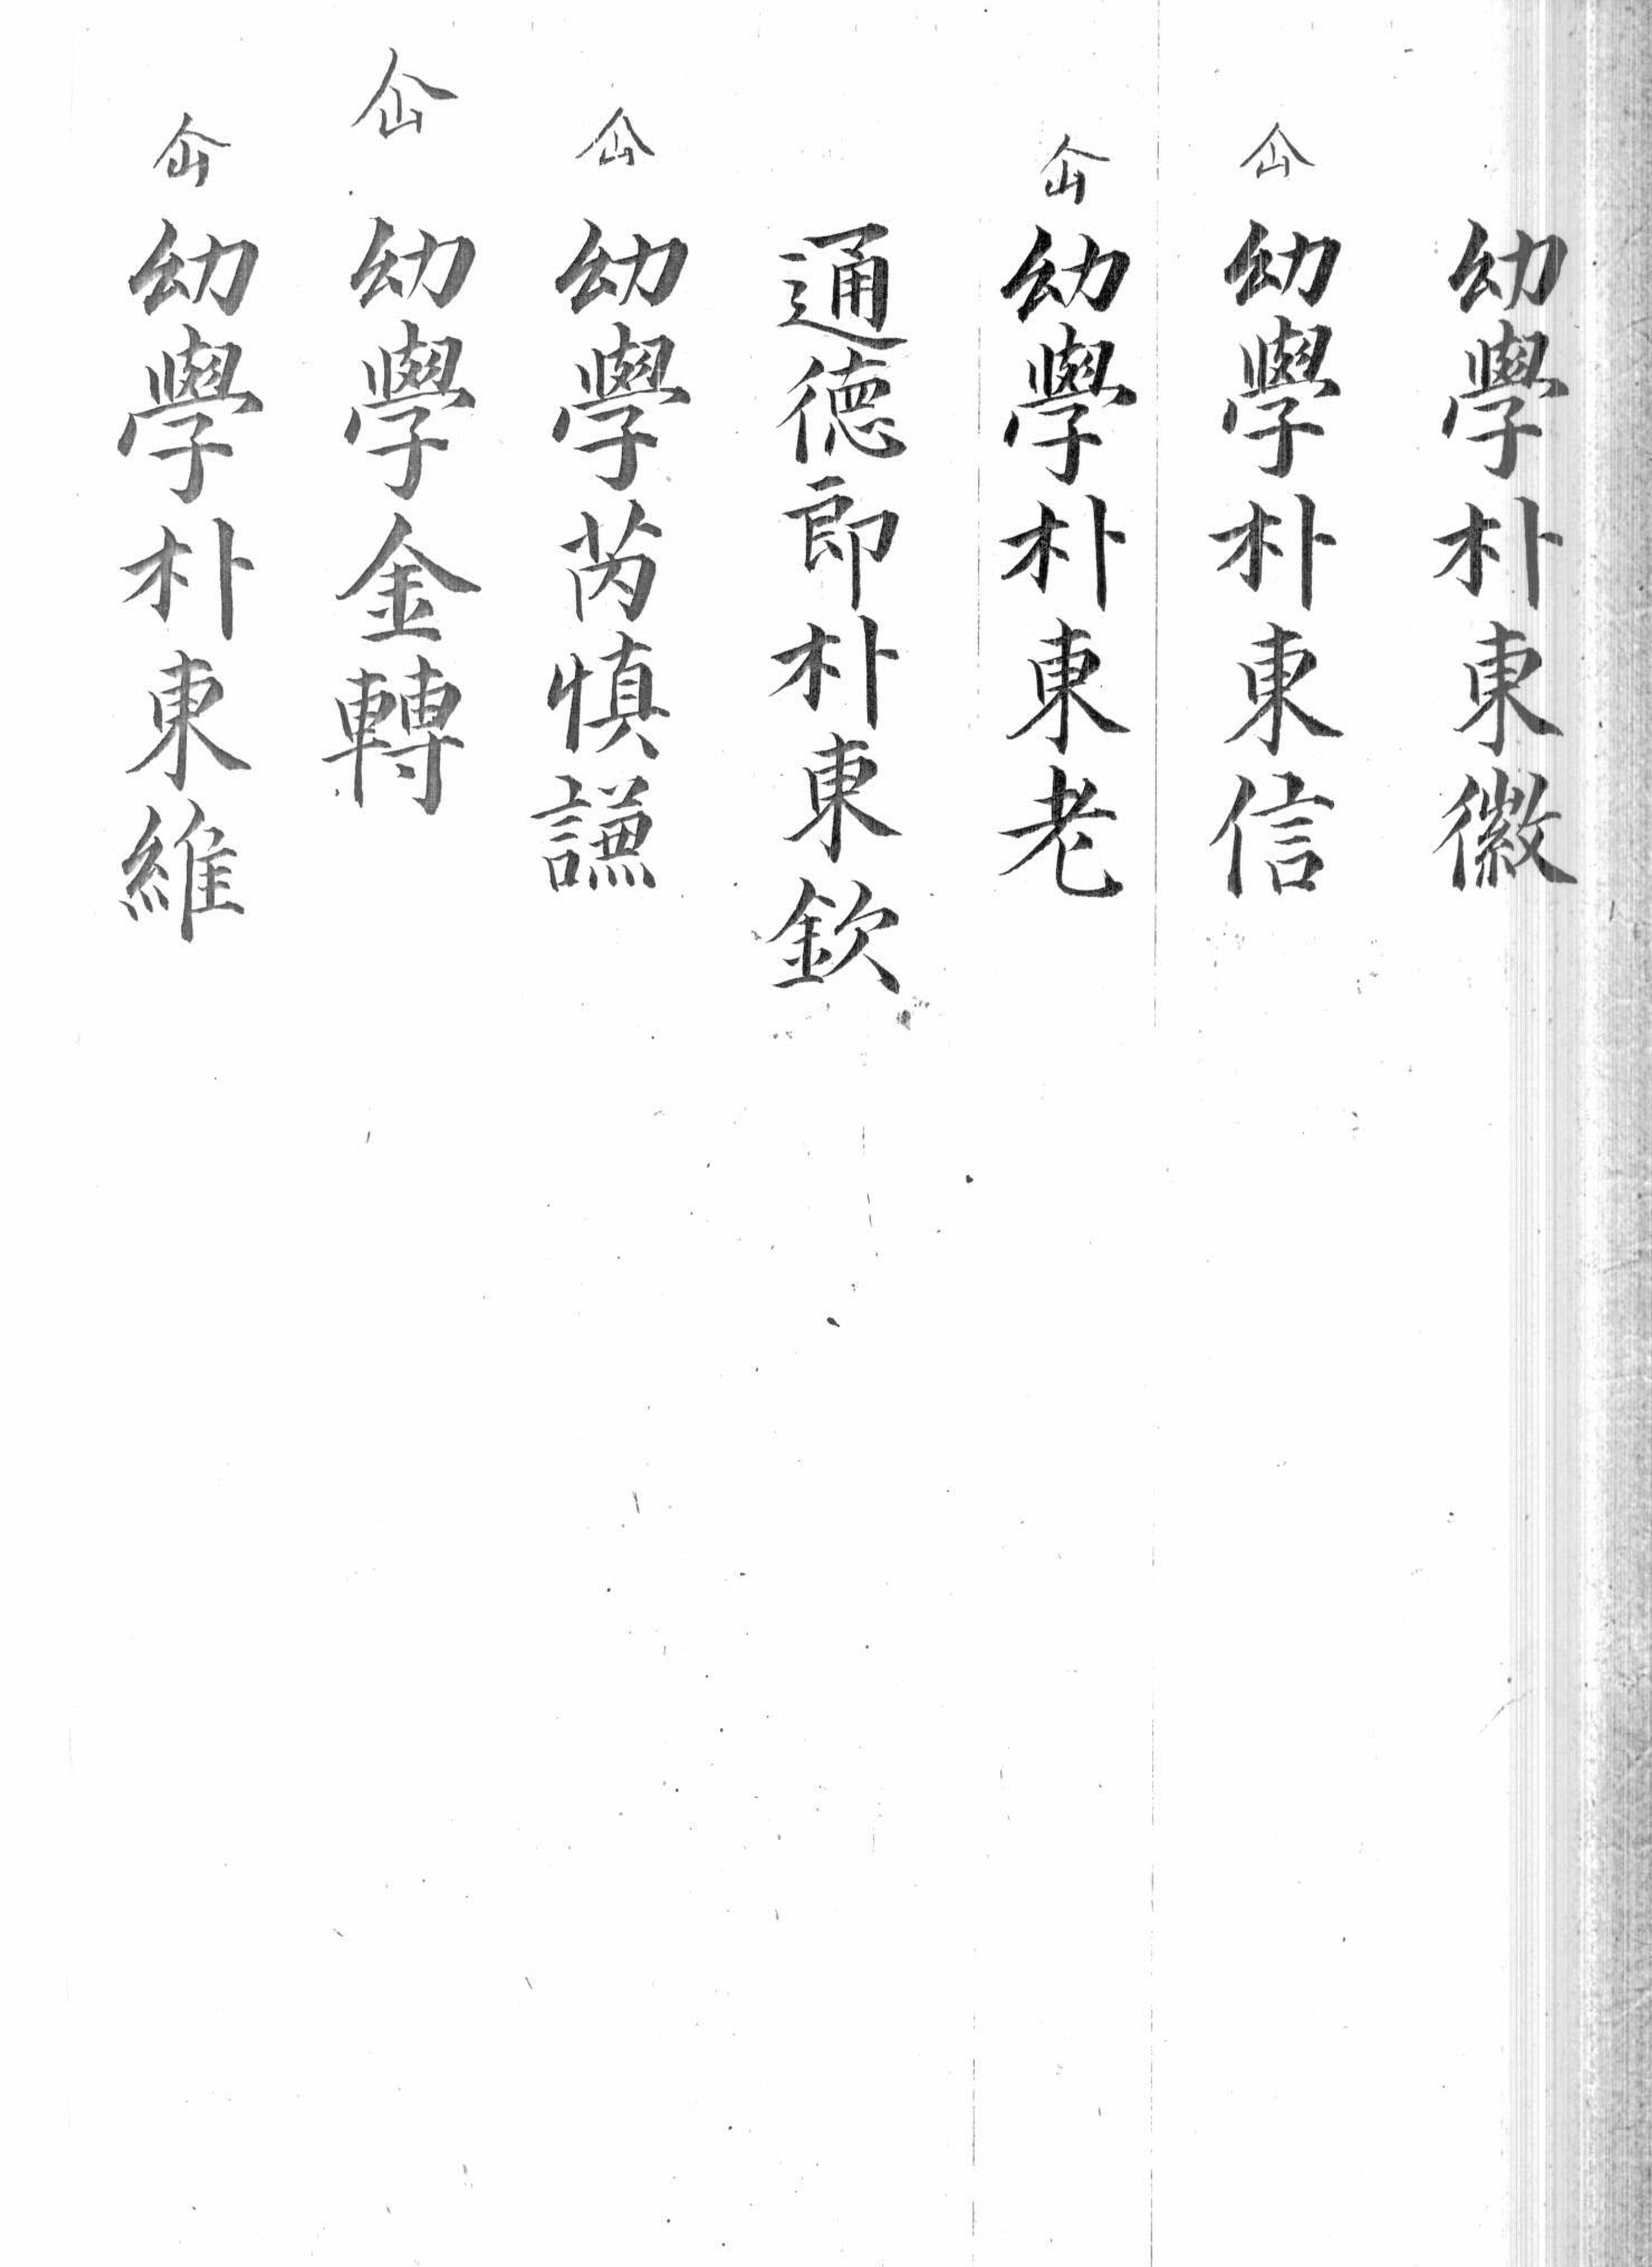 幼學朴東徽
仚幼學朴東信
仚幼學朴東老
通德郎朴東欽
仚幼學芮慎謙
仚幼學金轉
仚幼學朴東維